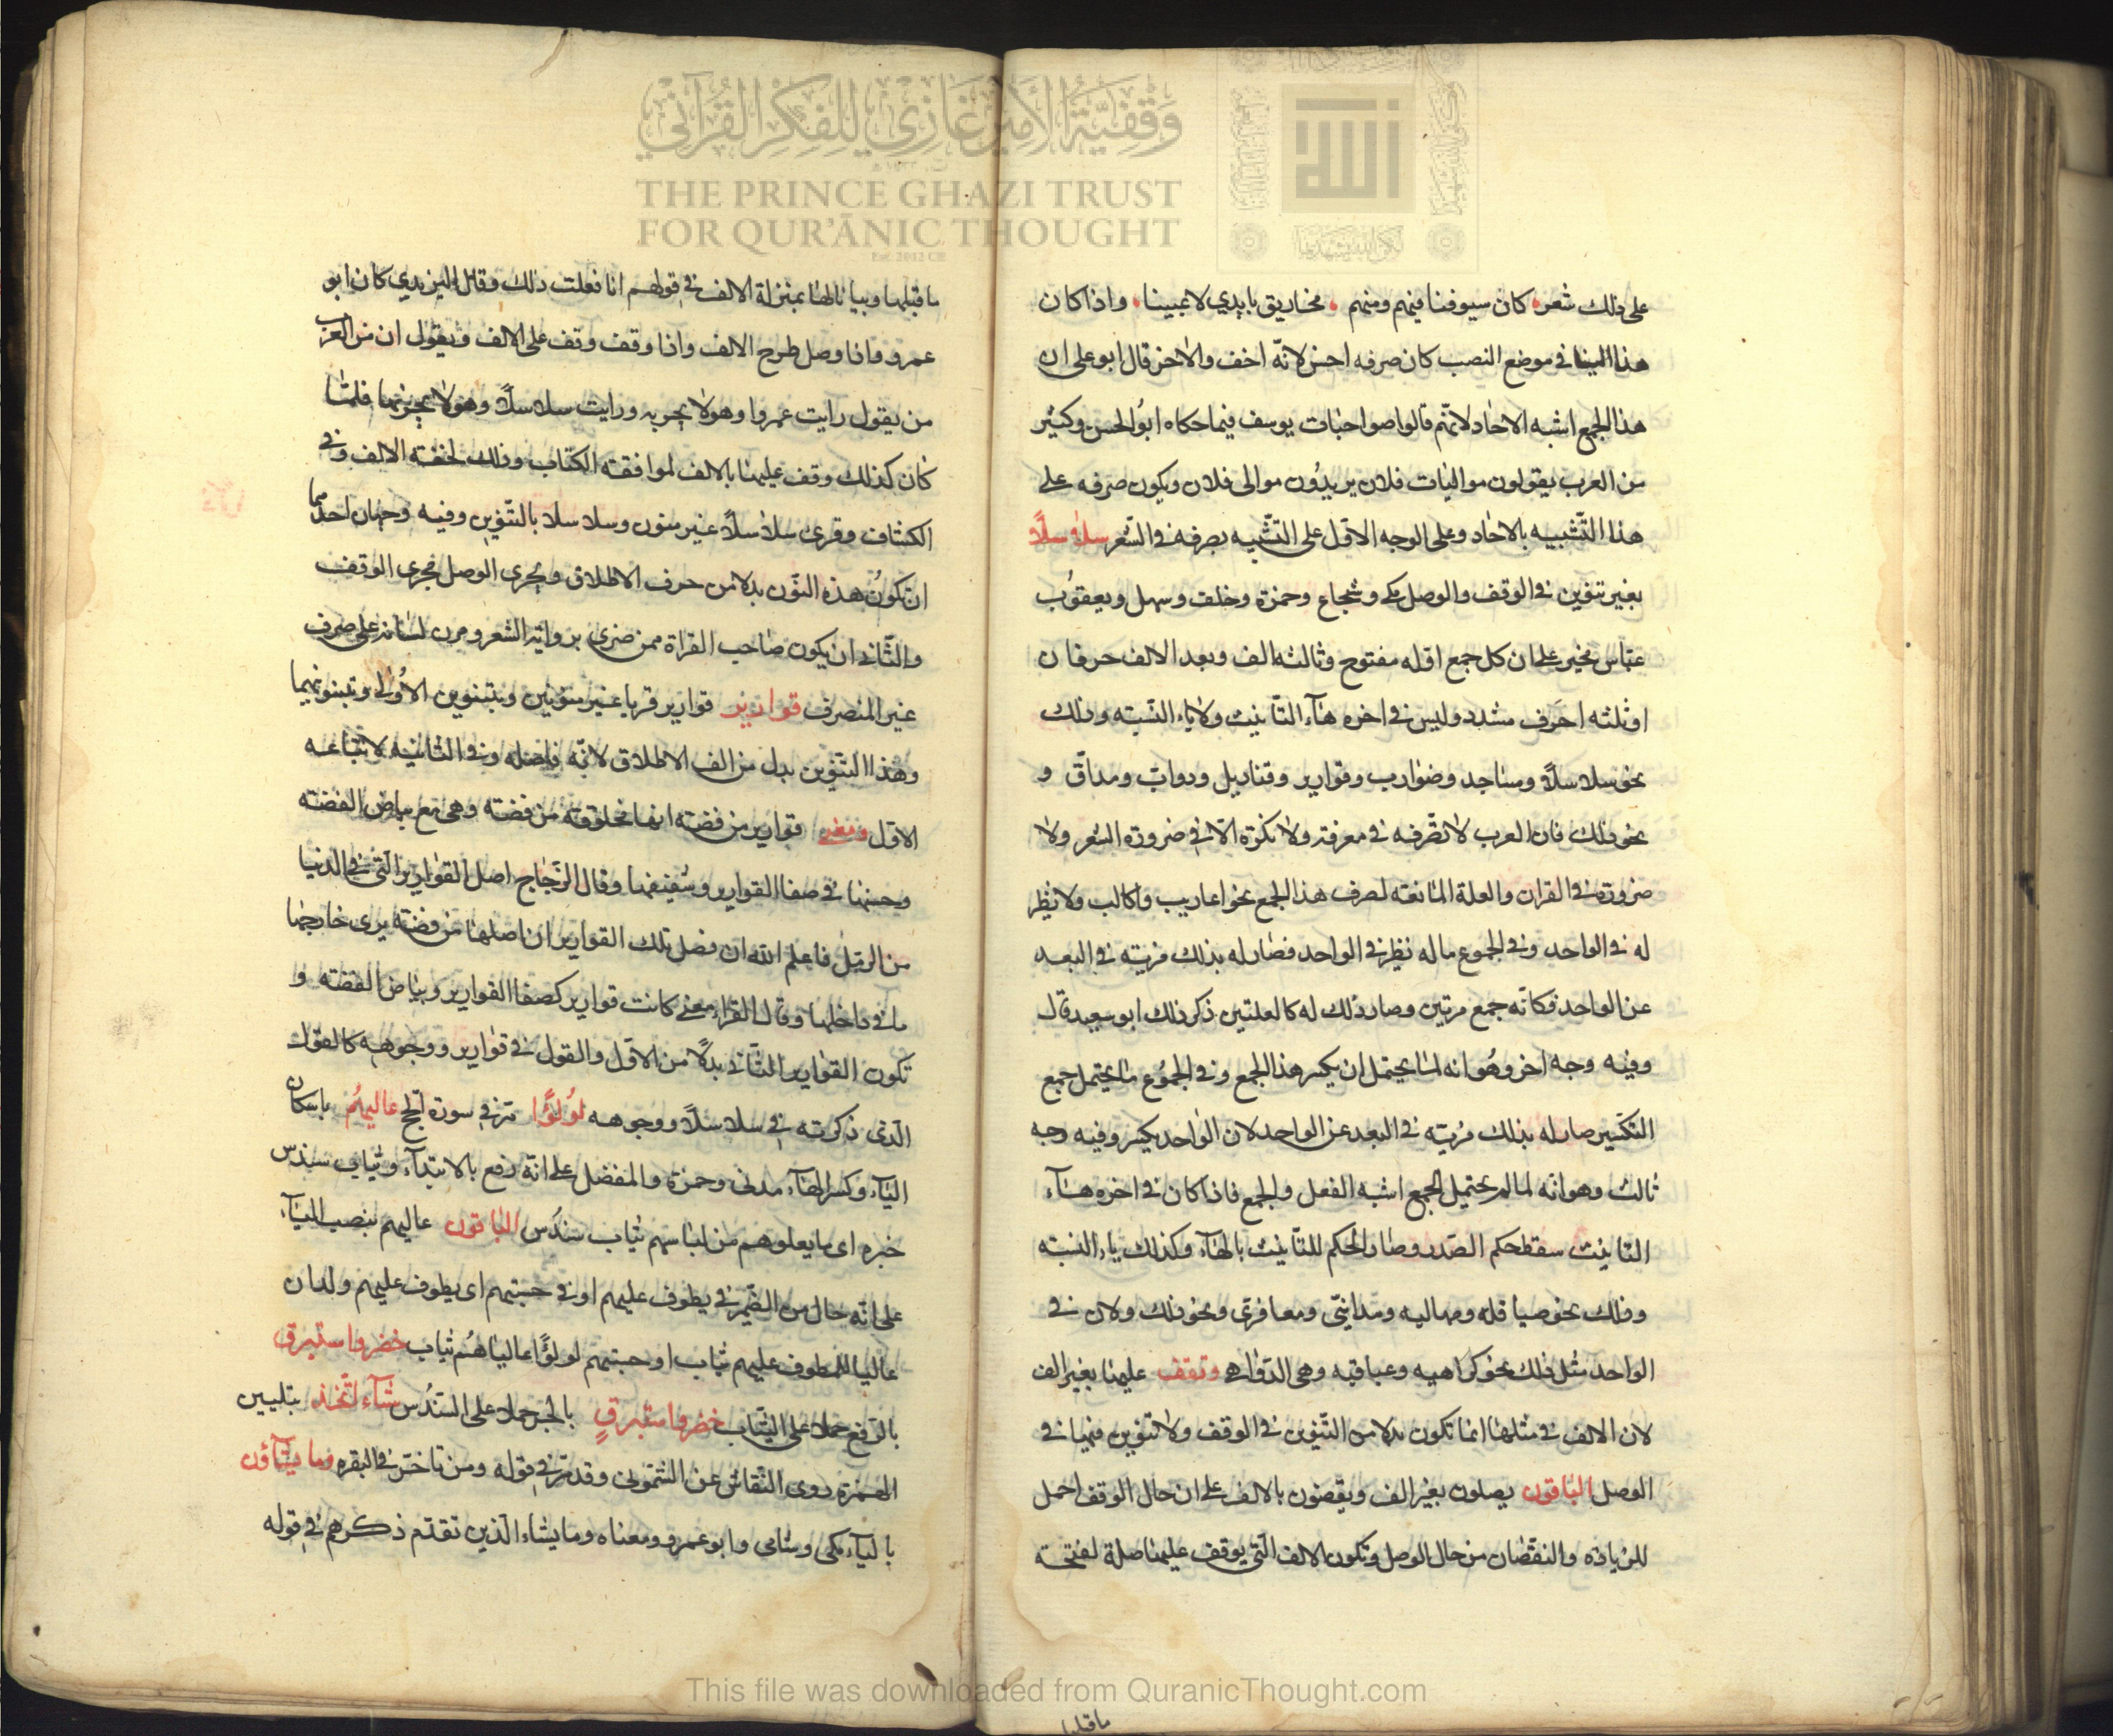 وقفية الأمير غازي للفكر القرآني
THE PRINCE GHAZI TRUST
FOR QUR'ĀNIC THOUGHT
Est. 2012 CE
على ذلك شعر كان سيوفنا فيهم ومنهم مخاريق بايدي لاعبينا واذا كان
هذا البنا في موضع النصب كان صرفه احسن لانّه اخف والاخر قال ابو على ان
هذا الجمع اشبه الاحاد لانّهم قالوا صواحبات يوسف فيما حكاه ابو الحسن وكثير
من العرب يقولون مواليات فلان يريدون موالى فلان ويكون صرفه على
هذا التّشبيه بالاحاد وعلى الوجه الاوّل على التّشبيه بصرفه في الشّعر سلاسلاً
بغير تنوين في الوقف والوصل مكي وشجاع وحمزة وخلف وسهل ويعقوب
عبّاس مخير على ان كل جمع اوله مفتوح وثالثه الف وبعد الالف حرفان
اوثلثه احرف مشدد وليس في اخره هآء التّانيث ولاياء النّسبه وذلك
نحو سلاسلاً ومساجد وضوارب وقوارير وقناديل ودوابّ ومداقّ و
نحو ذلك فان العرب لا تصّرفه في معرفة ولا نكرة الّا في ضرورة الشعر ولا
ضرورة في القران والعلة المانعته لصرف هذا الجمع نحو اعاريب واكالب ولا نظير
له في الواحد وفي الجموع ماله نظير في الواحد فصار له بذلك مزيّته في البعد
عن الواحد فكانّه جمع مرتين وصار ذلك له كالعلتين ذكر ذلك ابو سعيد قال
وفيه وجه اخر وهو انه لما يحتمل ان يكسر هذا الجمع وفي الجموع ما يحتمل جمع
التكسير صار له بذلك مزيّته في البعد عن الواحد لان الواحد يكسر وفيه وجه
ثالث وهو انّه لما لم يحتمل الجمع اشبه الفعل والجمع فاذا كان في اخره هآء
التانيث سقط حكم الصّدر وصار الحكم للتّانيث بالهآء وكذلك ياء النسبه
وذلك نحو صياقله ومهالبه ومداينيّ ومعافريّ ونحو ذلك ولان في
الواحد مثل ذلك نحو كراهيه وعباقيه وهي الدّواهي وتقف عليها بغير الف
لان الالف في مثلها انما تكون بدلا من التّنوين في الوقف ولا تنوين فيها في
الوصل الباقون يصلون بغير الف ويقفون بالالف على ان حال الوقف احمل
للزيادة والنقصان من حال الوصل وتكون الالف الّتي يوقف عليها صلة لفتحة
ماقبلها
ماقبلها وبيانا لها بمنزلة الالف في قولهم انا فعلت ذلك وقال اليزيدي كان ابو
عمرو فاذا وصل طرح الالف واذا وقف وقف على الالف ويقول ان من العرب
من يقول رايت عمروا وهو لا يجريه ورايت سلاسلاً وهو لا يجريها فلمّا
كان كذلك وقف عليها بالالف لموافقة الكتاب وذلك لخفته الالف وفي
الكشاف وقرئ سلاسلاً غير منون وسلاسلا بالتّنوين وفيه وجهان احدهما
ان تكون هذه النّون بدلا من حرف الاطلاق ويجرى الوصل مجرى الوقف
والثّاني ان يكون صاحب القراة ممن ضري برواية الشعر ومرن لسانه على صرف
غير المنصرف قوارير قوارير قريا غير منونين وبتنوين الاولى وتبنونهما
وهذا التنوين بدل من الف الاطلاق لانّه فاصله وفي الثانيه لاتباعه
الاول ومعنى قوارير من فضته انها مخلوقته من فضته وهي مع بياض الفضته
وحسنها في صفا القوارير وشفيفها وقال الزّجاج اصل القوارير الّتي في الدنيا
من الرمل فاعلم الله ان فضل تلك القوارير ان اصلها من فضته يرى خارجها
ما في داخلها وقال الفراء معنى كانت قوارير كصفا القوارير وبياض الفضته و
تكون القوارير الثّاني بدلاً من الاوّل والقول في قوارير ووجوهه كالقول
الّذى ذكرته في سلاسلاً ووجوهه لؤلؤًا مرّ في سورة الحج عاليهُم باسكان
اليآء وكسر الهآء مدنى وحمزة والمفضل على انّه رفع بالابتدآء وثياب سندس
خبره اى ما يعلوهم من لباسهم ثياب سندس الباقون عاليهم بنصب اليآء
على انّه حال من الضّمير في يطوف عليهم او في حسبتهم اى يطوف عليهم ولدان
عاليا للمطوف عليهم ثياب او حسبتهم لؤلؤًا عاليا هُم ثياب خضر واستبرق
بالرّفع حملا على الثّياب خضر واستبرقٍ بالجر حملا على السّندُس شآء اتّخذ بتليين
الهمزة روى النّقاش عن الشّمونى وقد مرّ في قوله ومن تاخرّ في البقره وما يشآؤن
باليآء مكى وشامى وابو عمرو ومعناه وما يشاء الّذين تقدّم ذكرهم في قوله
This file was downloaded from QuranicThought.com